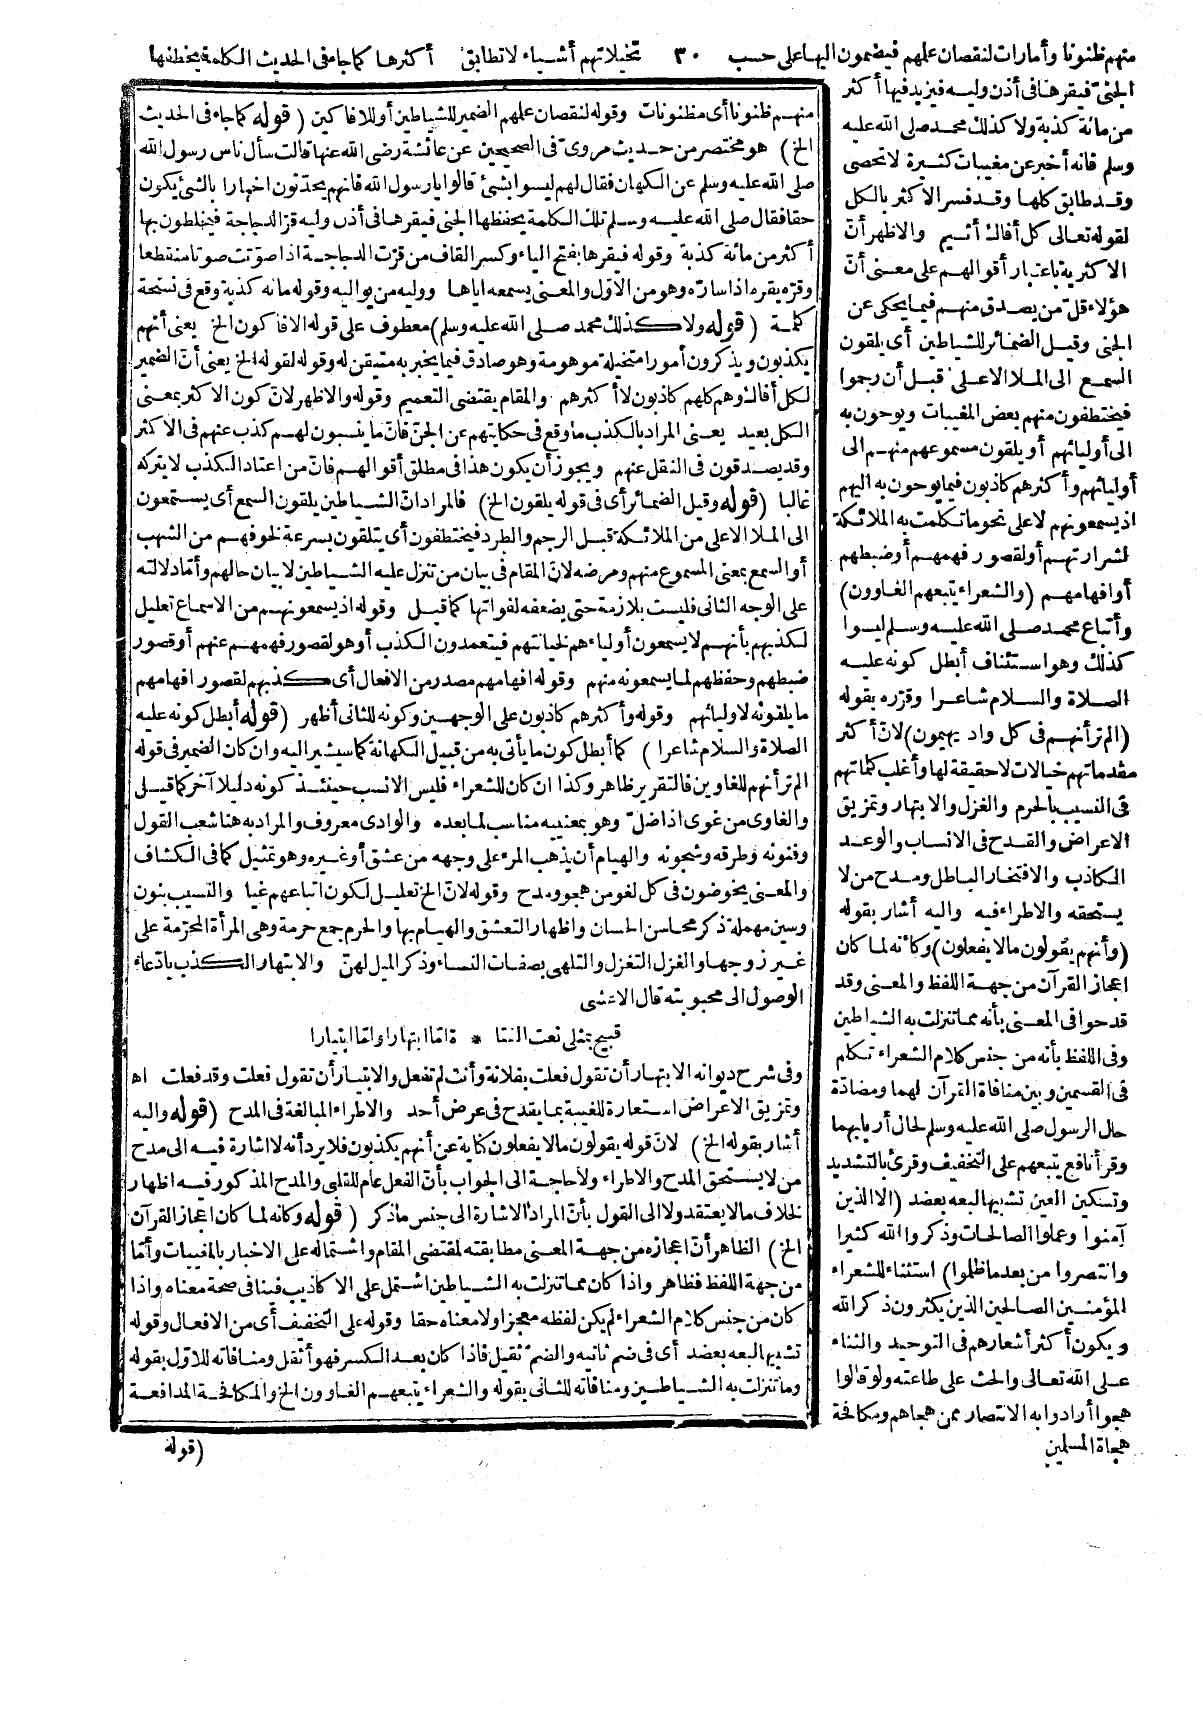 منهم ظنونا وأمارات لنقصان علمهم فيضمون اليها على حسب ٣٠ تخيلاتهم أشياء لا تطابق أكثرها كما جاء في الحديث الكلمة يخطفها
الجنيّ فيقرها في أذن وليه فيزيد فيها أكثر
من مائة كذبة ولا كذلك محمد صلى الله عليه
وسلم فانه أخبر عن مغيبات كثيرة لا تحصى
وقد طابق كلها وقد فسر الاكثر بالكل
لقوله تعالى كل أفاك أثيم والاظهر أنّ
الاكثرية باعتبار أقوالهم على معنى أنّ
هؤلاء قلّ من يصدق منهم فيما يحكى عن
الجنى وقيل الضمائر للشياطين أى يلقون
السمع الى الملا الاعلى قبل أن رجموا
فيختطفون منهم بعض المغيبات ويوحون به
الى أوليائهم أو يلقون مسموعهم منهم الى
أوليائهم وأكثرهم كاذبون فيما يوحون به اليهم
اذ يسمعونهم لا على نحو ما تكلمت به الملائكة
لشرارتهم أو لقصور فهمهم أو ضبطهم
أو افهامهم (والشعراء يتبعهم الغاوون)
وأتباع محمد صلى الله عليه وسلم ليسوا
كذلك وهو استئناف أبطل كونه عليه
الصلاة والسلام شاعرا وقرّره بقوله
(ألم تر أنهم في كل واد يهيمون) لانّ أكثر
مقدماتهم خيالات لا حقيقة لها وأغلب كلماتهم
في النسيب بالحرم والغزل والابتهار وتمزيق
الاعراض والقدح فى الانساب والوعد
الكاذب والافتخار الباطل ومدح من لا
يستحقه والاطراء فيه واليه أشار بقوله
(وأنهم يقولون ما لا يفعلون) وكأنه لما كان
اعجاز القرآن من جهة اللفظ والمعنى وقد
قدحوا فى المعنى بأنه مما تنزلت به الشياطين
وفى اللفظ بأنه من جنس كلام الشعراء تكلم
فى القسمين وبين منافاة القرآن لهما ومضادّة
حال الرسول صلى الله عليه وسلم لحال أربابهما
وقرأ نافع يتبعهم على التخفيف وقرئ بالتشديد
وتسكين العين تشبيها لبعه بعضد (الا الذين
آمنوا وعملوا الصالحات وذكروا الله كثيرا
وانتصروا من بعد ما ظلموا) استثناء للشعراء
المؤمنين الصالحين الذين يكثرون ذكر الله
ويكون أكثر أشعارهم فى التوحيد والثناء
على الله تعالى والحث على طاعته ولو قالوا
هجوا أرادوا به الانتصار ممن هجاهم ومكافحة
هجاة المسلمين
منهم ظنونا أى مظنونات وقوله لنقصان علمهم الضمير للشياطين أو للافاكين (قوله كما جاء فى الحديث
الخ) هو مختصر من حديث مروىّ فى الصحيحين عن عائشة رضى الله عنها قالت سأل ناس رسول الله
صلى الله عليه وسلم عن الكهان فقال لهم ليسوا بشئ قالوا يا رسول الله فانهم يحدّثون اخبارا بالشئ يكون
حقا فقال صلى الله عليه وسلم تلك الكلمة يحفظها الجنى فيقرها فى أذن وليه قرّ الدجاجة فيخلطون بها
أكثر من مائة كذبة وقوله فيقرها بفتح الياء وكسر القاف من قرّت الدجاجة اذا صوّتت صوتا منقطعا
وقرّه يقره اذا سارّه وهو من الاوّل والمعنى يسمعه اياها ووليه من يواليه وقوله مائة كذبة وقع فى نسخة
كلمة (قوله ولا كذلك محمد صلى الله عليه وسلم) معطوف على قوله الافاكون الخ يعنى أنهم
يكذبون ويذكرون أمورا متخيلة موهومة وهو صادق فيما يخبر به متيقن له وقوله لقوله الخ يعنى أنّ الضمير
لكل أفاك وهم كلهم كاذبون لا أكثرهم والمقام يقتضى التعميم وقوله والاظهر لانّ كون الاكثر بمعنى
الكل بعيد يعنى المراد بالكذب ما وقع فى حكايتهم عن الجنّ فانّ ما ينسبون لهم كذب عنهم فى الاكثر
وقد يصدقون فى النقل عنهم ويجوز أن يكون هذا فى مطلق أقوالهم فانّ من اعتاد الكذب لا يتركه
غالبا (قوله وقيل الضمائر أى فى قوله يلقون الخ) فالمراد انّ الشياطين يلقون السمع أى يستمعون
الى الملا الاعلى من الملائكة قبل الرجم والطرد فيختطفون أى يتلقون بسرعة لخوفهم من الشهب
أو السمع بمعنى المسموع منهم ومرضه لانّ المقام فى بيان من تنزل عليه الشياطين لا بيان حالهم وأمّا دلالته
على الوجه الثانى فليست بلازمة حتى يضعفه لفواتها كما قيل وقوله اذ يسمعونهم من الاسماع تعليل
لكذبهم بأنهم لا يسمعون أولياءهم لخيانتهم فيتعمدون الكذب أو هو لقصور فهمهم عنهم أو قصور
ضبطهم وحفظهم لما يسمعونه منهم وقوله افهامهم مصدر من الافعال أى كذبهم لقصور افهامهم
ما يلقونه لاوليائهم وقوله وأكثرهم كاذبون على الوجهين وكونه للثانى أظهر (قوله أبطل كونه عليه
الصلاة والسلام شاعرا) كما أبطل كون ما يأتى به من قبيل الكهانة كما سيشير اليه وان كان الضمير فى قوله
ألم تر أنهم للغاوين فالتقرير ظاهر وكذا ان كان للشعراء فليس الانسب حينئذ كونه دليلا آخر كما قيل
والغاوى من غوى اذا ضلّ وهو بمعنييه مناسب لما بعده والوادى معروف والمراد به هنا شعب القول
وفنونه وطرقه وشجونه والهيام أن يذهب المرء على وجهه من عشق أو غيره وهو تمثيل كما فى الكشاف
والمعنى يخوضون فى كل لغو من هجو ومدح وقوله لانّ الخ تعليل لكون اتباعهم غيا والنسيب بنون
وسين مهملة ذكر محاسن الحسان واظهار التعشق والهيام بها والحرم جمع حرمة وهى المرأة المحرّمة على
غير زوجها والغزل التغزل والتلهى بصفات النساء وذكر الميل لهنّ والابتهار الكذب بادّعاء
الوصول الى محبوبته قال الاعشى
قبيح بمثلى نعت الفتا * ة امّا ابتهارا وامّا ابتيارا
وفى شرح ديوانه الابتهار أن تقول فعلت بفلانة وأنت لم تفعل والابتيار أن تقول فعلت وقد فعلت اه
وتمزيق الاعراض استعارة للغيبة بما يقدح فى عرض أحد والاطراء المبالغة فى المدح (قوله واليه
أشار بقوله الخ) لانّ قوله يقولون ما لا يفعلون كناية عن أنهم يكذبون فلا يرد أنه لا اشارة فيه الى مدح
من لا يستحق المدح والاطراء ولا حاجة الى الجواب بأنّ الفعل عام للقلبى والمدح المذكور فيه اظهار
لخلاف ما لا يعتقد ولا الى القول بأنّ المراد الاشارة الى جنس ما ذكر (قوله وكانه لما كان اعجاز القرآن
الخ) الظاهر أنّ اعجازه من جهة المعنى مطابقته لمقتضى المقام واشتماله على الاخبار بالمغيبات وأمّا
من جهة اللفظ فظاهر واذا كان مما تنزلت به الشياطين اشتمل على الاكاذيب فينافى صحة معناه واذا
كان من جنس كلام الشعراء لم يكن لفظه معجزا ولا معناه حقا وقوله على التخفيف أى من الافعال وقوله
تشبيها لبعه بعضد أى فى ضم ثانيه والضمّ ثقيل فاذا كان بعد الكسر فهو أثقل ومنافاته للاوّل بقوله
وما تنزلت به الشياطين ومنافاته للثانى بقوله والشعراء يتبعهم الغاوون الخ والمكافحة المدافعة
(قوله